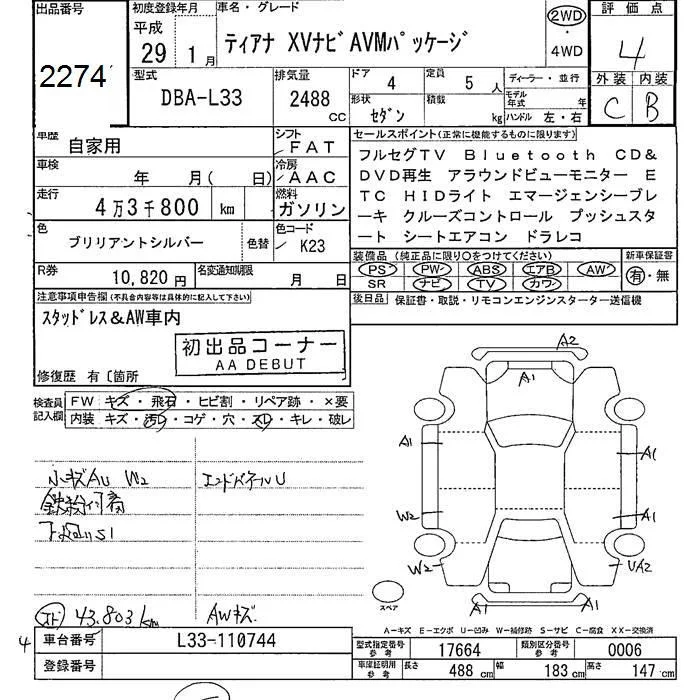 出品番号
2274
初度登録年月
平成
29 1月
車名・グレード
ティアナ XVナビAVMパッケージ
2WD
・
4WD
評価点
4
型式
DBA-L33
排気量
2488
CC
ドア
4
定員
5人
形状
セダン
積載
kg
ディーラー・並行
モデル年式 年
ハンドル 左・右
外装 内装
C B
車歴
自家用
シフト
FAT
車検
年 月( 日)
冷房
AAC
走行
4万3千800 km
燃料
ガソリン
色
ブリリアントシルバー
色替
色コード
K23
R券
10,820円
名変通知期限
月 日
セールスポイント(正常に機能するものに限ります)
フルセグTV Bluetooth CD&
DVD再生 アラウンドビューモニター E
TC HIDライト エマージェンシーブレ
ーキ クルーズコントロール プッシュスタ
ート シートエアコン ドラレコ
装備品 (純正品に限り○をつけてください)
PS PW ABS エアB AW
SR ナビ TV カワ
新車保証書
有・無
後日品 保証書・取説・リモコンエンジンスターター送信機
注意事項申告欄(不具合内容等は具体的に記入して下さい)
スタッドレス&AW車内
初出品コーナー
AA DEBUT
修復歴 有〔箇所
検査員記入欄
FW キズ・飛石・ヒビ割・リペア跡・×要
内装 キズ・汚レ・コゲ・穴・スレ・キレ・破レ
小キズAU W2
エンドパネルU
43,803km
AWキズ
A2
A1
A1
A1
W2
A1
W2
UA2
A1
A1
スペア
A-キズ E-エクボ U-凹み W-補修跡 S-サビ C-腐食 XX-交換済
4
車台番号 L33-110744
登録番号
型式指定番号 参考 17664
類別区分番号 参考 0006
車庫証明用 参考 長さ 488 cm 幅 183 cm 高さ 147 cm